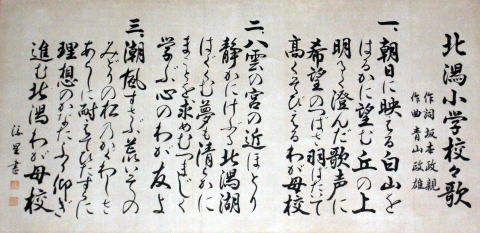 北潟小学校々歌
作詞 坂本政親
作曲 青山政雄
一、朝日に映える白山を
はるかに望む丘の上
明るく澄んだ歌声に
希望のつばさ羽ばたて
高くそびえるわが母校
二、八雲の宮の近ほとり
静かにけぶる北潟湖
はぐくむ夢も清らかに
まことを求めむつまじく
学ぶ心のわが友よ
三、潮風すさぶ荒いその
みどりの松のかぐわしさ
あらしに耐えてひたすらに
理想のかなたふり仰ぎ
進む北潟わが母校